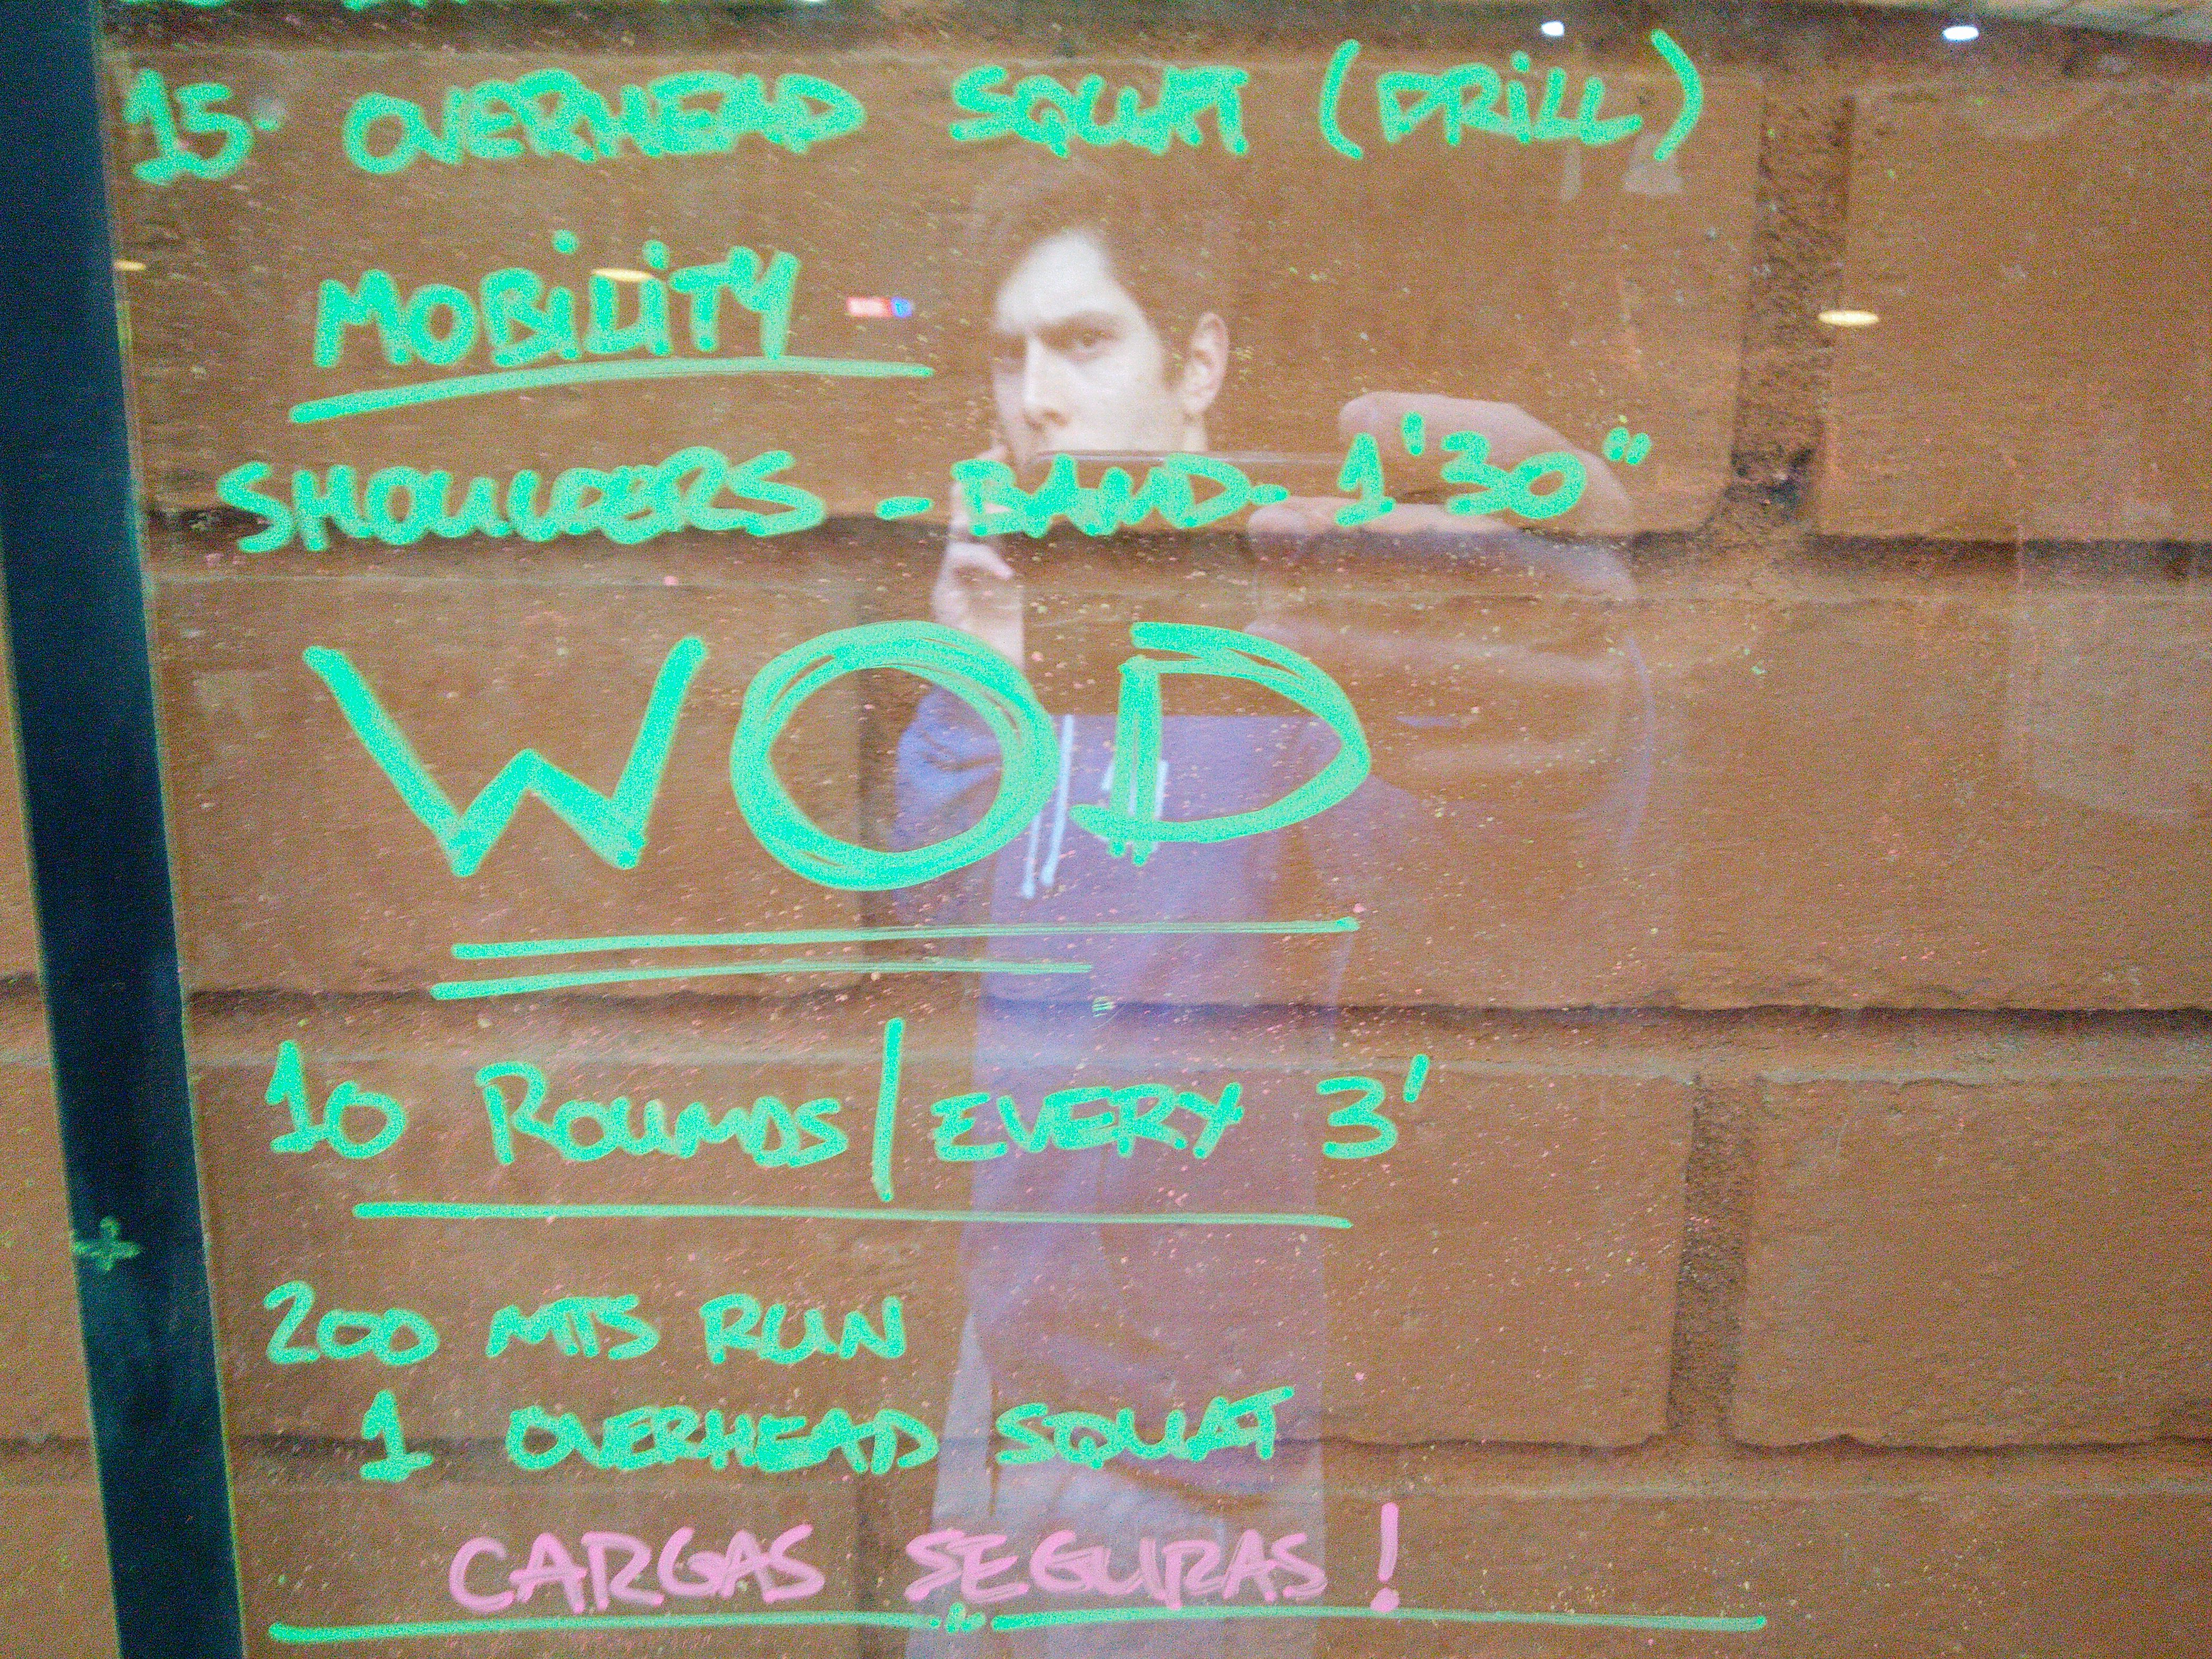 15 · OVERHEAD SQUAT (DRILL)
MOBILITY
SHOULDERS - BAND - 1'30"
WOD
10 ROUNDS/EVERY 3'
200 MTS RUN
1 OVERHEAD SQUAT
CARGAS SEGURAS!